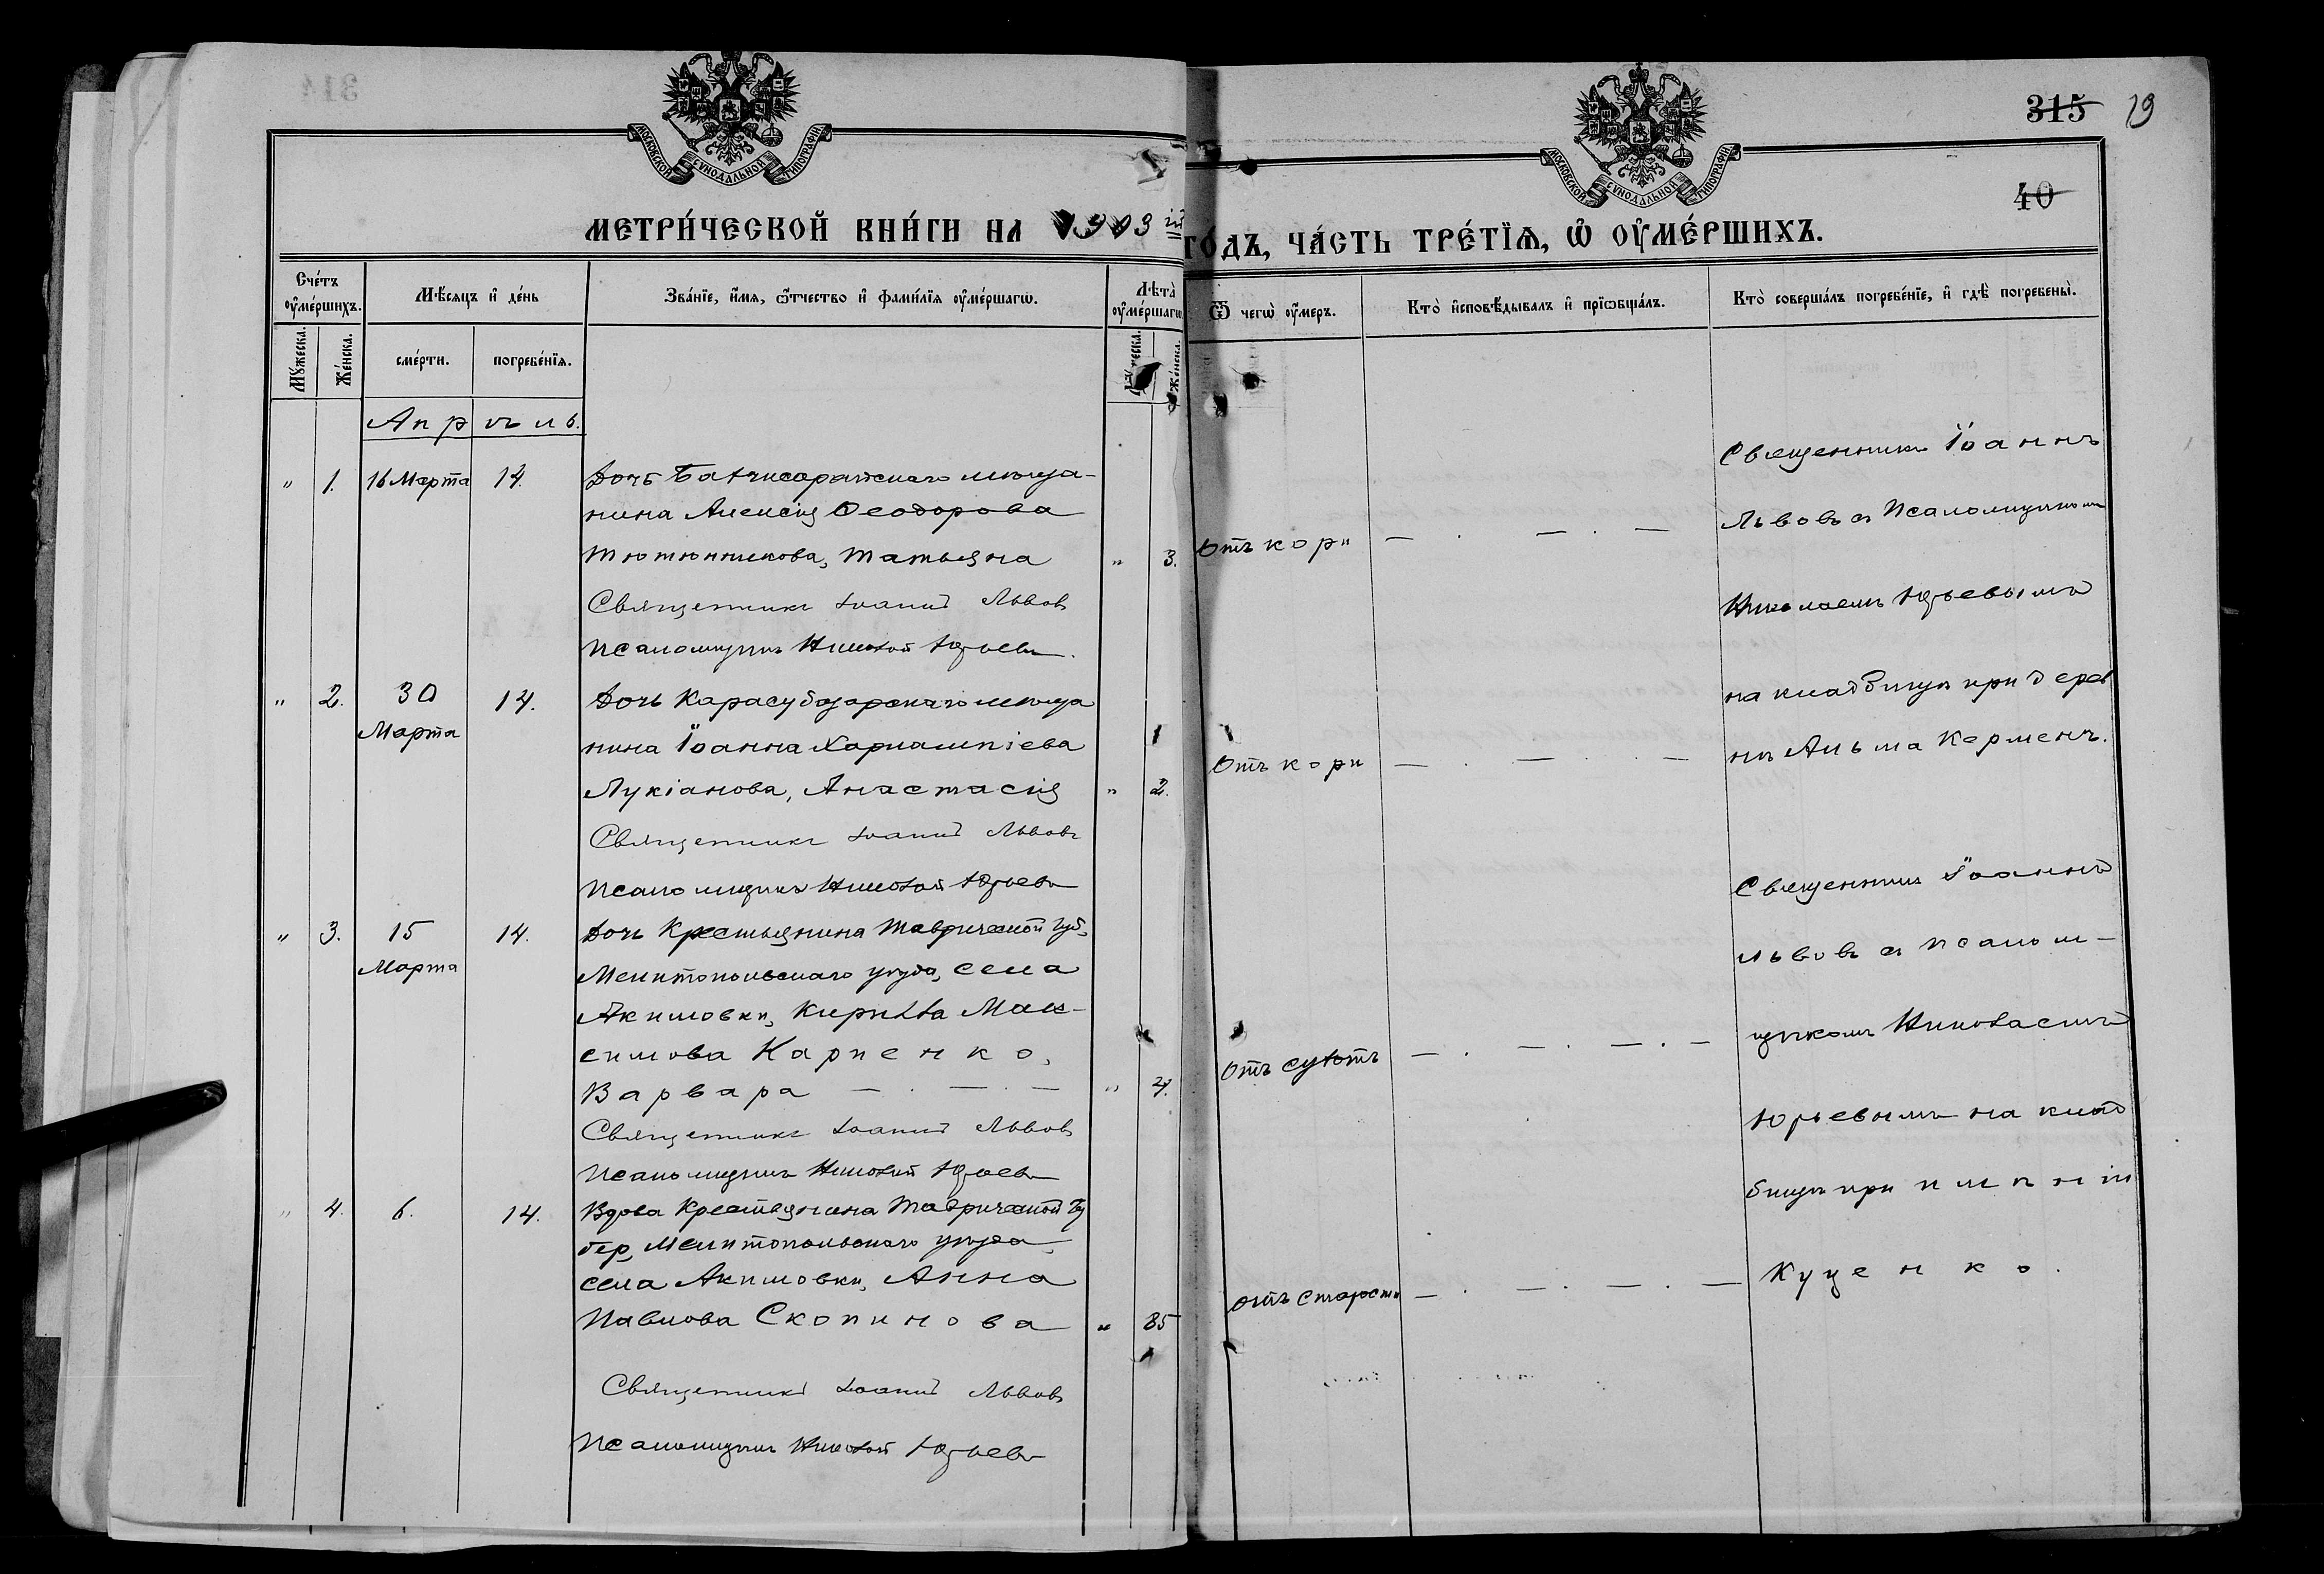 315 19
40
МОСКОВСКОЙ СУНОДАЛЬНОЙ ТИПОГРАФІИ
МОСКОВСКОЙ СУНОДАЛЬНОЙ ТИПОГРАФІИ
МЕТРИ́ЧЕСКОЙ КНИ́ГИ НА 1903 ій ГО́ДЪ, ЧА́СТЬ ТРЕ́ТЇѦ, Ѡ҆ ОУ҆МЕ́РШИХЪ.
Сче́тъ оу҆ме́ршихъ.
Мꙋ́жеска.
Же́нска.
Мѣ́сѧцъ и҆ де́нь
сме́рти.
погребе́нїѧ.
Зва́нїе, и҆́мѧ, ѻ҆́тчество и҆ фами́лїѧ оу҆ме́ршагѡ.
Лѣта̀ оу҆ме́ршагѡ.
Же́нска.
Ѿ чегѡ̀ оу҆́меръ.
Кто̀ и҆сповѣ́дывалъ и҆ прїѡбща́лъ.
Кто̀ соверша́лъ погребе́нїе, и҆ гдѣ̀ погребены̀.
Апрѣль.
" 1. 16 Марта 14. Дочь Бахчисарайскаго мѣща-
нина Алексія Ѳеодорова
Тютюнникова, Татьяна " 3. Отъ кори — . — . —
Священникъ Іоаннъ Львовъ
Псаломщикъ Николай Юрьевъ.
Священникъ Іоаннъ
Львовъ съ псаломщикомъ
Николаемъ Юрьевымъ
на кладбищѣ при дерев
нѣ Альма Керменъ.
" 2. 30 Марта 14. Дочь Карасубазарскаго мѣща
нина Іоанна Харлампіева
Лукіанова, Анастасія " 2. Отъ кори — . — . —
Священникъ Іоаннъ Львовъ
Псаломщикъ Николай Юрьевъ
" 3. 15 Марта 14. Дочь Крестьянина Таврической Губ,
Мелитопольскаго уѣзда, села
Акимовки, Кирилла Мак-
симова Карпенко,
Варвара — . — . — " 4. Отъ сухотъ — . — . — . —
Священникъ Іоаннъ Львовъ
Псаломщикъ Николай Юрьевъ
Священникъ Іоаннъ
Львовъ съ псалом-
щикомъ Николаемъ
Юрьевымъ на клад
бищѣ при имѣніи
Куценко.
" 4. 6. 14. Вдова Крестьянина Таврической Гу
бер, Мелитопольскаго уѣзда,
села Акимовки, Анна
Павлова Скопинова " 85 отъ старости — . — . — . —
Священникъ Іоаннъ Львовъ
Псаломщикъ Николай Юрьевъ